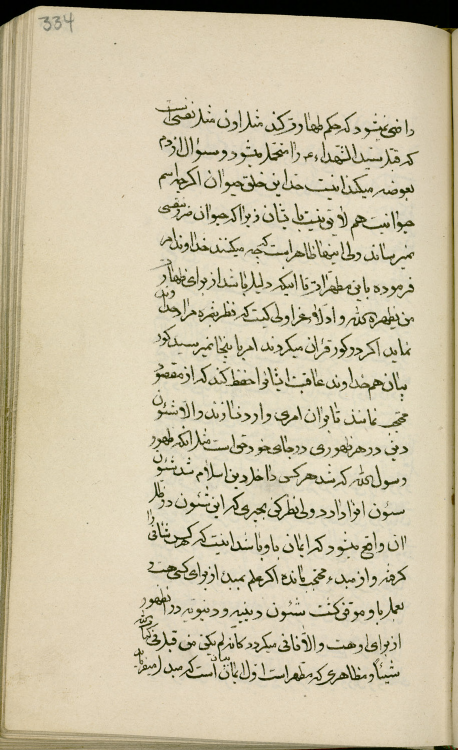 334
راضی نمیشود که حکم طهارت کند مثل اون مثل نفسی است
که قتل سید الشهداء ع را متحمل میشود و سؤال از دم
بعوضه میکند اینست حد این خلق حیوان اگرچه اسم
حیوانیت هم لایق نیست بایشان زیرا که حیوان ضرر بنفسی
نمیرساند ولی اینها ظاهر است که چه میکنند خداوند امر
فرموده باین مطهرات تا اینکه دلیل باشد از برای ظهار
من یظهره الله و ادلاء
نماید اگر در کور قرآن میکردند امر باینجا نمیرسید کور
بیان هم خداوند عاقبت ایشانرا حفظ کند که از مقصود
محتجب نمانند تا بر آن امری وارد نیارند والا شئون
دین در هر ظهوری در جای خود حق است مثل آنکه ظهور
رسول الله که شد هر کس داخل دین اسلام شد شئون
شئون افراد دارد ولی نظر کن بجوهری که این شئون در ظل
آن واقع میشود که ایمان باو باشد اینست که کل شئانی
گرفته و از مبدء محتجب مانده اگر علم بمبدء از برای کسی هست و
بعمل باو موقن گشت شئون دینیه و دنیویه در ظهور
از برای او هست والا فانی میگردد کانه لم یکن من قبل
شیئا و مظاهری که مطهر است اول ایمان بیان است که مبدل میفرماید